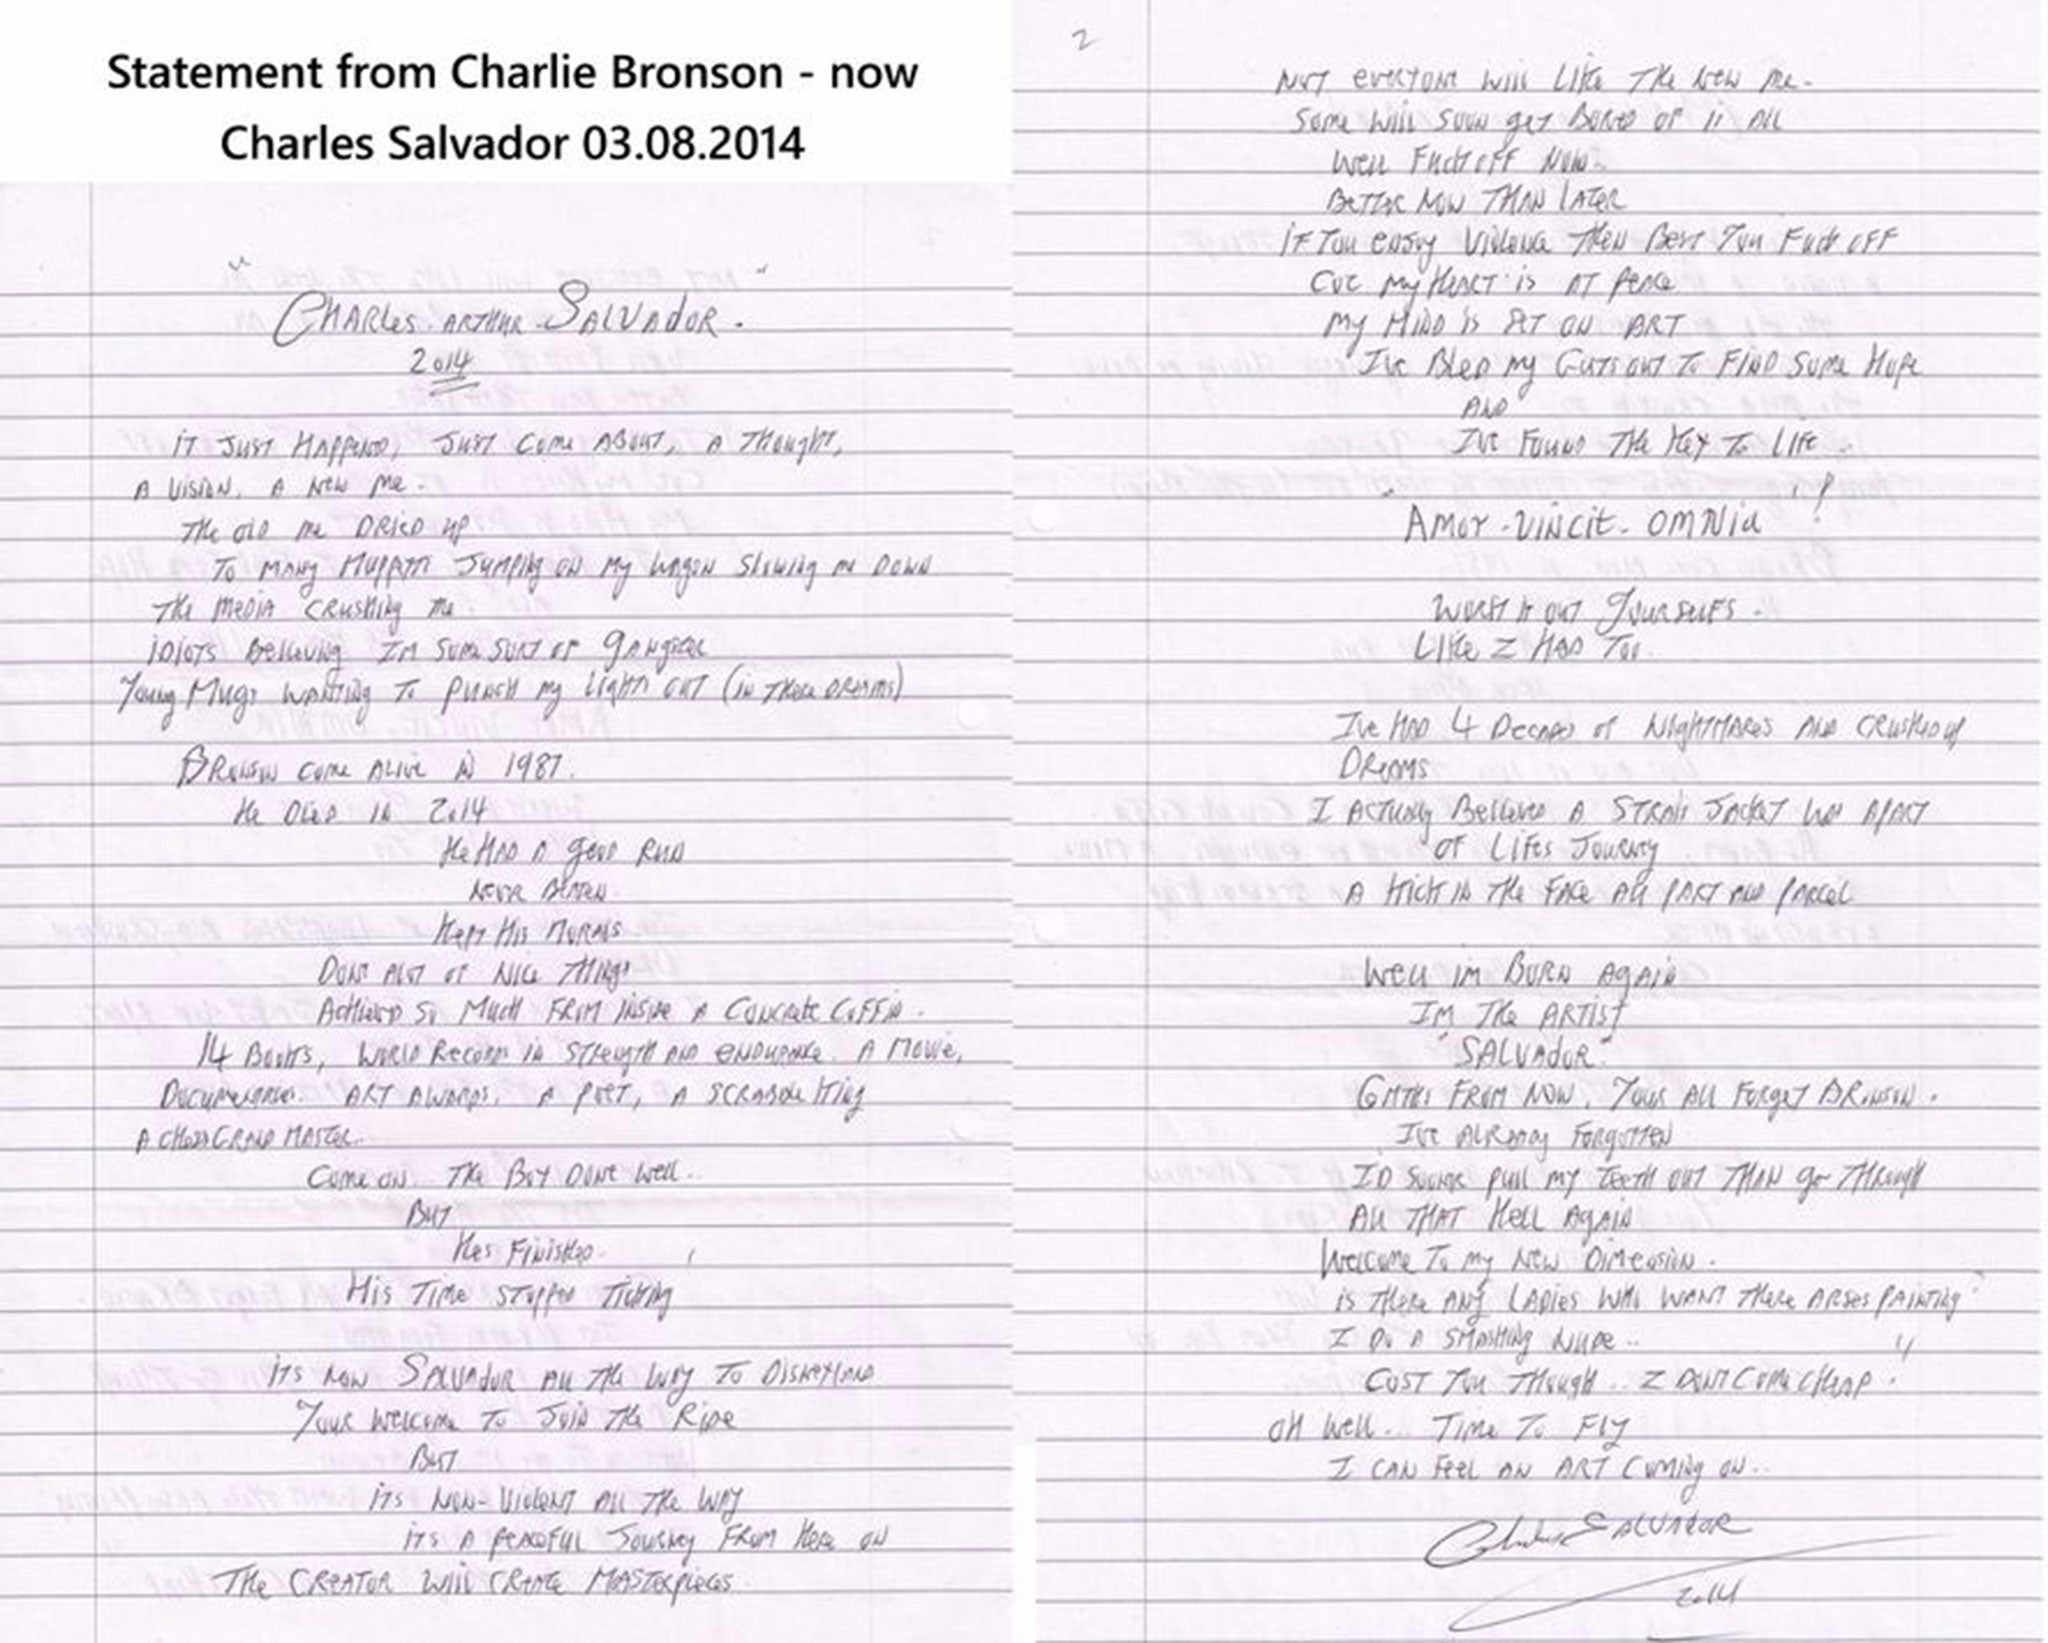 Statement from Charlie Bronson - now
Charles Salvador 03.08.2014
"CHARLES.ARTHUR.SALVADOR."
2014
iT JUST HAPPEND, JUST COME ABOUT, A THOUGHT,
A VISION. A NEW ME.
THE OLD ME DRIED UP
TO MANY MUPPETS JUMPING ON MY WAGON SLOWING ME DOWN
THE MEDIA CRUSHING ME
IDIOTS BELIEVING IM SOME SORT OF GANGSTER
YOUNG MUGS WANTING TO PUNCH MY LIGHTS OUT (IN THERE DREAMS)
BRONSON COME ALIVE IN 1987.
HE DIED IN 2014
HE HAD A GOOD RUN
NEVER BEATEN.
KEPT HIS MORALS
DONE ALOT OF NICE THINGS
ACHIEVED SO MUCH FROM INSIDE A CONCRETE COFFIN.
14 BOOKS, WORLD RECORDS IN STRENGTH AND ENDURANCE. A MOVIE,
DOCUMENTARIES. ART AWARDS. A POET, A SCRABBLE KING
A CHESS GRAND MASTER.
COME ON.. THE BOY DONE WELL..
BUT
HES FINISHED.
HIS TIME STOPPED TICKING
ITS NOW SALVADOR ALL THE WAY TO DISNEYLAND
YOUR WELCOME TO JOIN THE RIDE
BUT
ITS NON-VIOLENT ALL THE WAY
ITS A PEACEFUL JOURNEY FROM HERE ON
THE CREATOR WILL CREATE MASTERPIECES.
2
NOT EVERYONE WILL LIKE THE NEW ME.
SOME WILL SOON GET BORED OF IT ALL
WELL FUCK OFF NOW.
BETTER NOW THAN LATER
IF YOU ENJOY VIOLENCE THEN BEST YOU FUCK OFF
COZ MY HEART IS AT PEACE
MY MIND IS SET ON ART
I'VE BLED MY GUTS OUT TO FIND SOME HOPE
AND
I'VE FOUND THE KEY TO LIFE..
"AMOR-VINCIT-OMNIA"!
WORK IT OUT YOURSELFS.
LIKE I HAD TOO.
IVE HAD 4 DECADES OF NIGHTMARES AND CRUSHED UP
DREAMS
I ACTUALLY BELIEVED A STRAIT JACKET WAS APART
OF LIFES JOURNEY
A KICK IN THE FACE ALL PART AND PARCEL
WELL IM BORN AGAIN
IM THE ARTIST
"SALVADOR."
6 MTHS FROM NOW, YOUS ALL FORGET BRONSON.
I'VE ALREADY FORGOTTEN
I'D SOONER PULL MY TEETH OUT THAN GO THROUGH
ALL THAT HELL AGAIN
WELCOME TO MY NEW DIMENSION.
IS THERE ANY LADIES WHO WANT THERE ARSES PAINTING
I DO A SMASHING NUDE..
COST YOU THOUGH.. I DONT COME CHEAP.
OH WELL.. TIME TO FLY
I CAN FEEL AN ART COMING ON..
Charles SALVADOR
2014